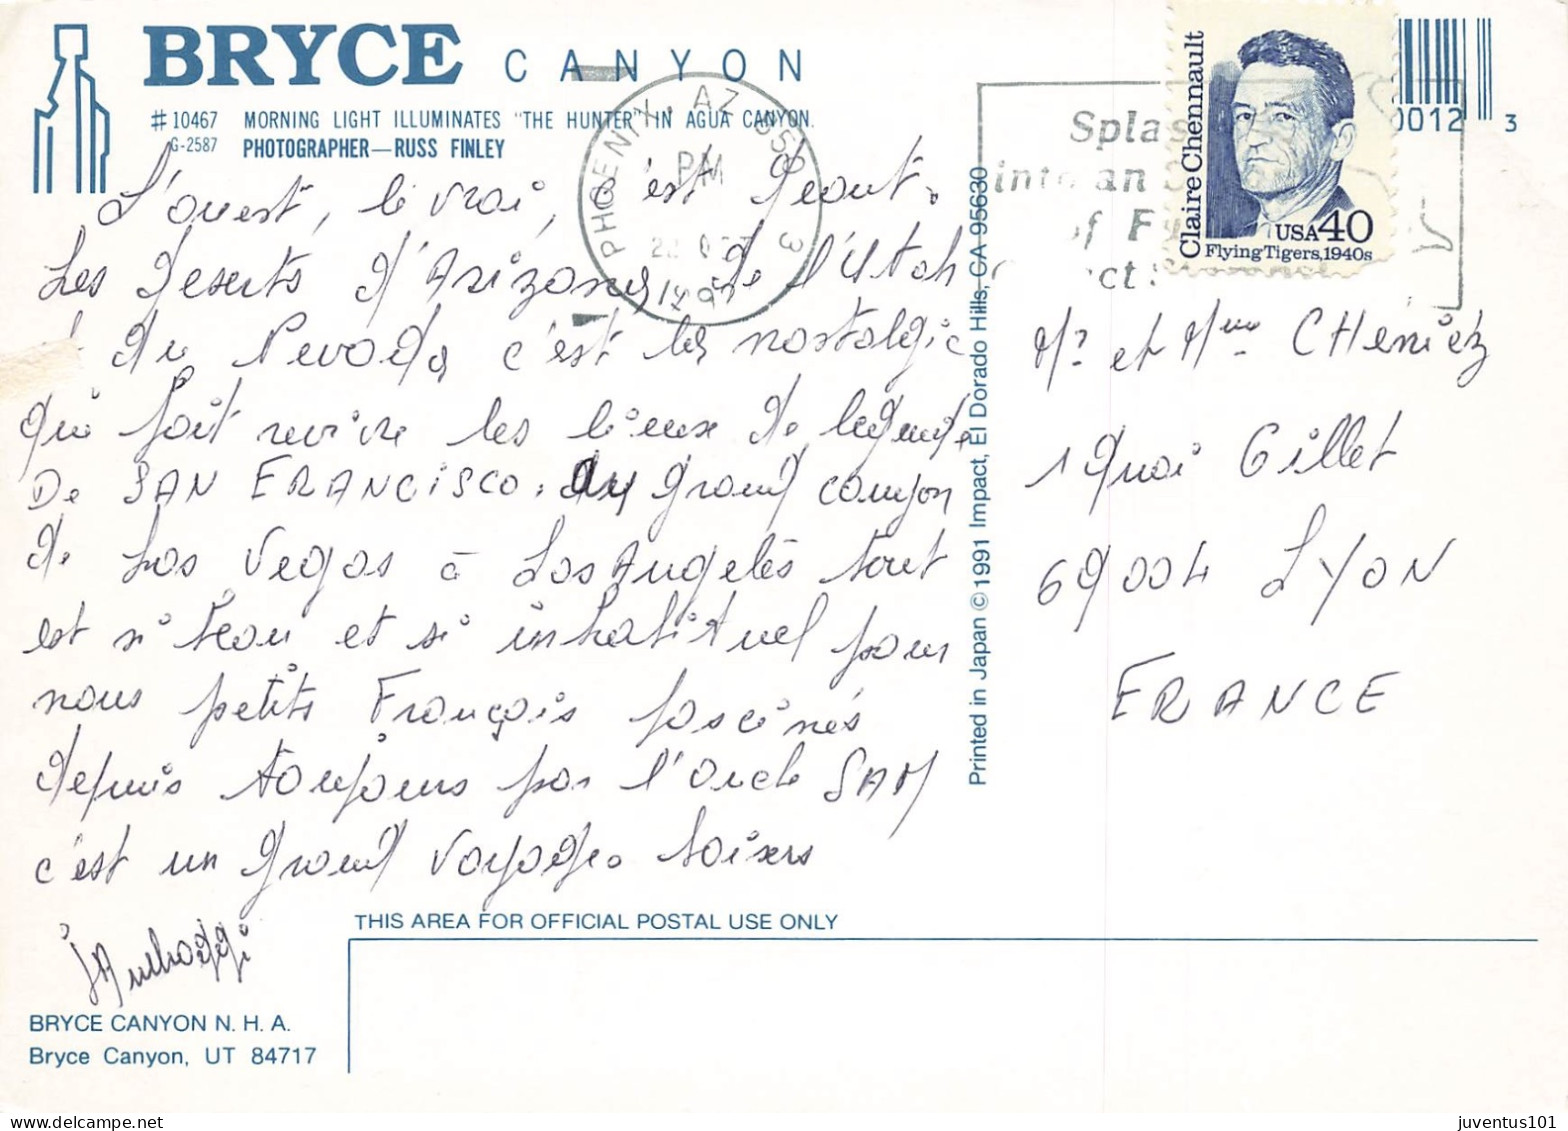 BRYCE CANYON
#10467 MORNING LIGHT ILLUMINATES "THE HUNTER" IN AGUA CANYON.
G-2587 PHOTOGRAPHER—RUSS FINLEY
L'ouest, le vrai, c'est géant.
Les deserts d'Arizona, de l'Utah
du Nevada, c'est la nostalgie
qui fait revivre les lieux de legende
De SAN FRANCISCO. au grand canyon
de Las Vegas à Los Angelès tout
est si beau et si inhabituel pour
nous petits Français fascinés
depuis toujours par l'oncle SAM
c'est un grand voyage. Baisers
BRYCE CANYON N. H. A.
Bryce Canyon, UT 84717
THIS AREA FOR OFFICIAL POSTAL USE ONLY
Printed in Japan ©1991 Impact, El Dorado Hills, CA 95630
PHOENIX, AZ 850 3
PM
1991
Spla
into an
of F
ct
Claire Chennault
USA 40
Flying Tigers, 1940s
0012 3
Mr et Mme CHENIEZ
1 Quai Gillet
69004 LYON
FRANCE
juventus101